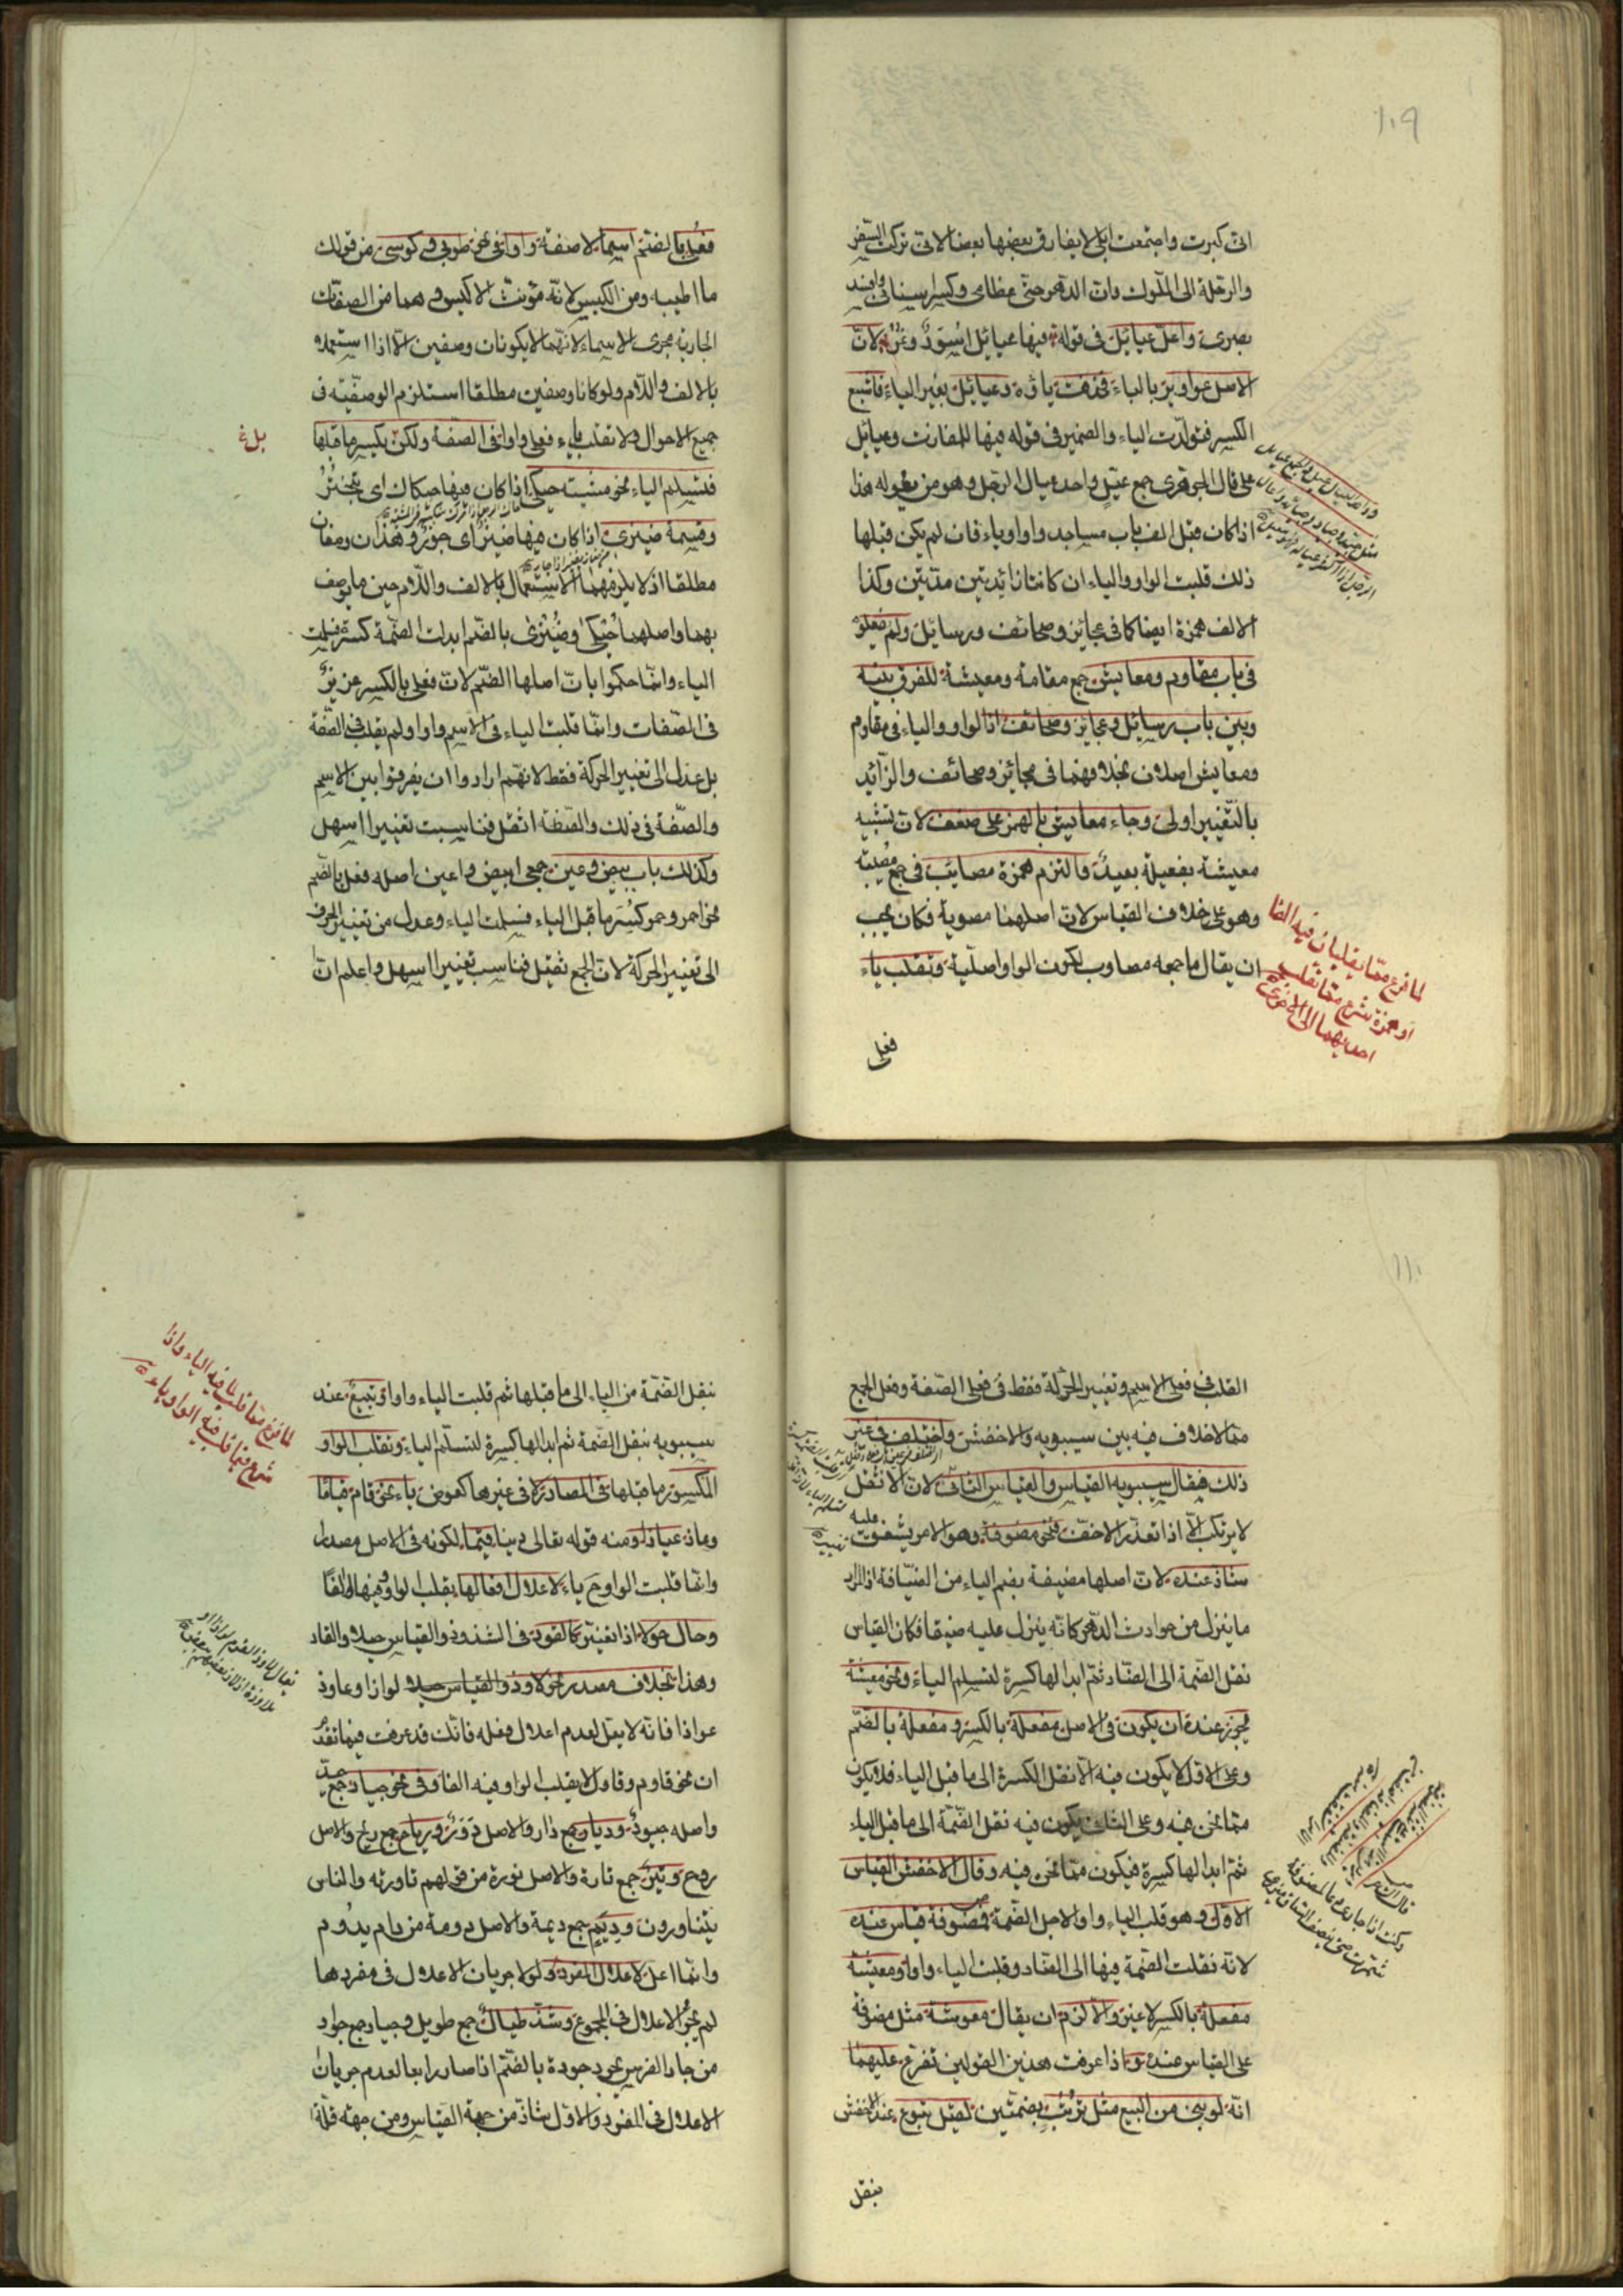 ١٠٩
انى كبرت واجتمعت ابلى لا يفارق بعضها بعضا لانى تركت السفر
والرحلة الى الملوك وان الدهر حنى عظامى وكسر اسنانى وافسد
بصرى واعل عيائل فى قوله فيها عيائيل اسود ونمر لان
الاصل عواوير بالياء فحذفت ياؤه وعيائل بغير الياء فاشبع
الكسر فتولدت الياء والضمير فى قوله فيها للمفازت وعيائل
على قال الجوهرى جمع عيّل واحد عيال الرجل وهو من يعوله هذا
اذا كان قبل الف باب مساجد واو او ياء فان لم يكن قبلها
ذلك قلبت الواو والياء ان كانتا زائدتين مدتين وكذا
الالف همزة ايضا كما فى عجائز وصحائف ورسائل ولم يفعلوه
فى باب مقاوم ومعايش جمع مقامة ومعيشة للفرق بينه
وبين باب رسائل وعجائز وصحائف اذ الواو والياء فى مقاوم
ومعايش اصلان بخلافهما فى عجائز وصحائف والزائد
بالتغيير اولى وجاء معائيش بالهمز على ضعف لان تشبيه
معيشة بفعيلة بعيد والتزم همزة مصائب فى جمع مصيبة
وهو على خلاف القياس لان اصلهما مصوبة فكان يجب
ان يقال ما جمعه مصاوب لكون الواو اصلية وتقلب ياء
فعلى
لما فرغ مما يقلبان فيه الفا
او همزة شرع مما تقلب
احديهما الى الاخرى
فعلى بالضم اسما لا صفة واوا فى نحو طوبى وكوسى من قولك
ما اطيبه ومن الكيس لانه مؤنث الاكيس وهما من الصفات
الجارية مجرى الاسماء لانهما لا يكونان وصفين الا اذا استعملا
بالالف واللام ولو كانا وصفين مطلقا استلزم الوصفية فى
جميع الاحوال ولا تقلب ياء فعلى واوا فى الصفة ولكن يكسر ما قبلها
بلغ
فتسلم الياء نحو مشية حيكى اذا كان فيها حيكان اى تبختر
وقسمة ضيزى اذا كان فيها ضيز اى جوز وهذان وصفان
مطلقا اذ لا يلزمهما الاستعمال بالالف واللام حين ما يوصف
بهما واصلهما حيكى وضيزى بالضم ابدلت الضمة كسرة فسلمت
الياء وانما حكموا بان اصلها الضم لان فعلى بالكسر عزيز
فى الصفات وانما قلبت الياء فى الاسم واوا ولم يقلب فى الصفة
بل عدل الى تغيير الحركة فقط لانهم ارادوا ان يفرقوا بين الاسم
والصفة فى ذلك والصفة اثقل فناسبت تغييرا اسهل
وكذلك باب بيض وعين جمعى ابيض واعين اصله فعل بالضم
نحو احمر وحمر كسر ما قبل الياء فسلمت الياء وعدل من تغيير الحرف
الى تغيير الحركة لان الجمع ثقيل فناسب تغييرا اسهل واعلم ان
١١٠
القلب فى فعلى الاسم وتغيير الحركة فقط فى فعلى الصفة وفعل الجمع
مما لا خلاف فيه بين سيبويه والاخفش واختلف فى غير
ذلك فقال سيبويه القياس والقياس الثانى لان الاثقل
لا يرتكب الا اذا تعذر الاخف فنحو مضوفة وهو الامر يشفق عليه
شاذ عنده لان اصلها مضيفة بضم الياء من الضيافة اذ المراد
ما ينزل من حوادث الدهر كانه ينزل عليه ضيفا فكان القياس
نقل الضمة الى الضاد ثم ابدالها كسرة لتسليم الياء ونحو معيشة
يجوز عنده ان يكون فى الاصل مفعلة بالكسر ومفعلة بالضم
وعلى الاول لا يكون فيه الا نقل الكسرة الى ما قبل الياء فلا يكون
مما نحن فيه وعلى الثانى يكون فيه نقل الضمة الى ما قبل الياء
ثم ابدالها كسرة فيكون مما نحن فيه وقال الاخفش القياس
الاول وهو قلب الياء واوا لاجل الضمة فمضوفة قياس عنده
لانه نقلت الضمة فيها الى الضاد وقلبت الياء واوا ومعيشة
مفعلة بالكسر لا غير والا لزم ان يقال معوشة مثل مضوفة
على القياس عنده واذا عرفت هذين القولين تفرع عليهما
انه لو بنى من البيع مثل ترتب بضمتين لقيل تبوع عند الاخفش
بنقل
بنقل الضمة من الياء الى ما قبلها ثم قلبت الياء واوا وتبيع عند
سيبويه بنقل الضمة ثم ابدالها كسرة لتسلم الياء وتقلب الواو
المكسور ما قبلها فى المصادر لا فى غيرها كعوض ياء نحو قام قياما
وعاذ عياذا ومنه قوله تعالى دينا قيما لكونه فى الاصل مصدرا
وانما قلبت الواو ح ياء لاعلال افعالها بقلب الواو فيها الفا
وحال حولا اذا تغير كالقود فى الشذوذ والقياس حيلا والقاد
وهذا بخلاف مصدر نحو لاوذ والقياس حيلا لواذا وعاوذ
عواذا فانه لا يعل لعدم اعلال فعله فانك قد عرفت فيما تقدم
ان نحو قاوم وقاول لا يقلب الواو فيه الفا وفى نحو جياد جمع جيد
واصله جيود وديار جمع دار والاصل دور ورياح جمع ريح والاصل
روح وتير جمع تارة والاصل تورة من قولهم تاورته والناس
يتناورون وديم جمع ديمة والاصل دومة من دام يدوم
وانما اعل لاعلال المفرد ولولا جريان الاعلال فى مفردها
لم يجز الاعلال فى الجموع وشذ طيال جمع طويل وجياد جمع جواد
من جاد الفرس يجود جودة بالضم اذا صار رايعا لعدم جريان
الاعلال فى المفرد والاول شاذ من جهة القياس ومن جهة قلة
لما فرغ مما قلب فيه الياء واوا
شرع فيما قلب فيه الواو ياء